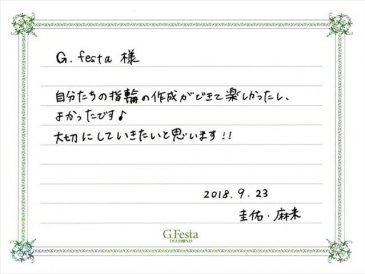 G.festa 様
自分たちの指輪の作成ができて楽しかったし、
よかったです♪
大切にしていきたいと思います!!
2018.9.23
圭佑・麻未
G.Festa
DIAMOND